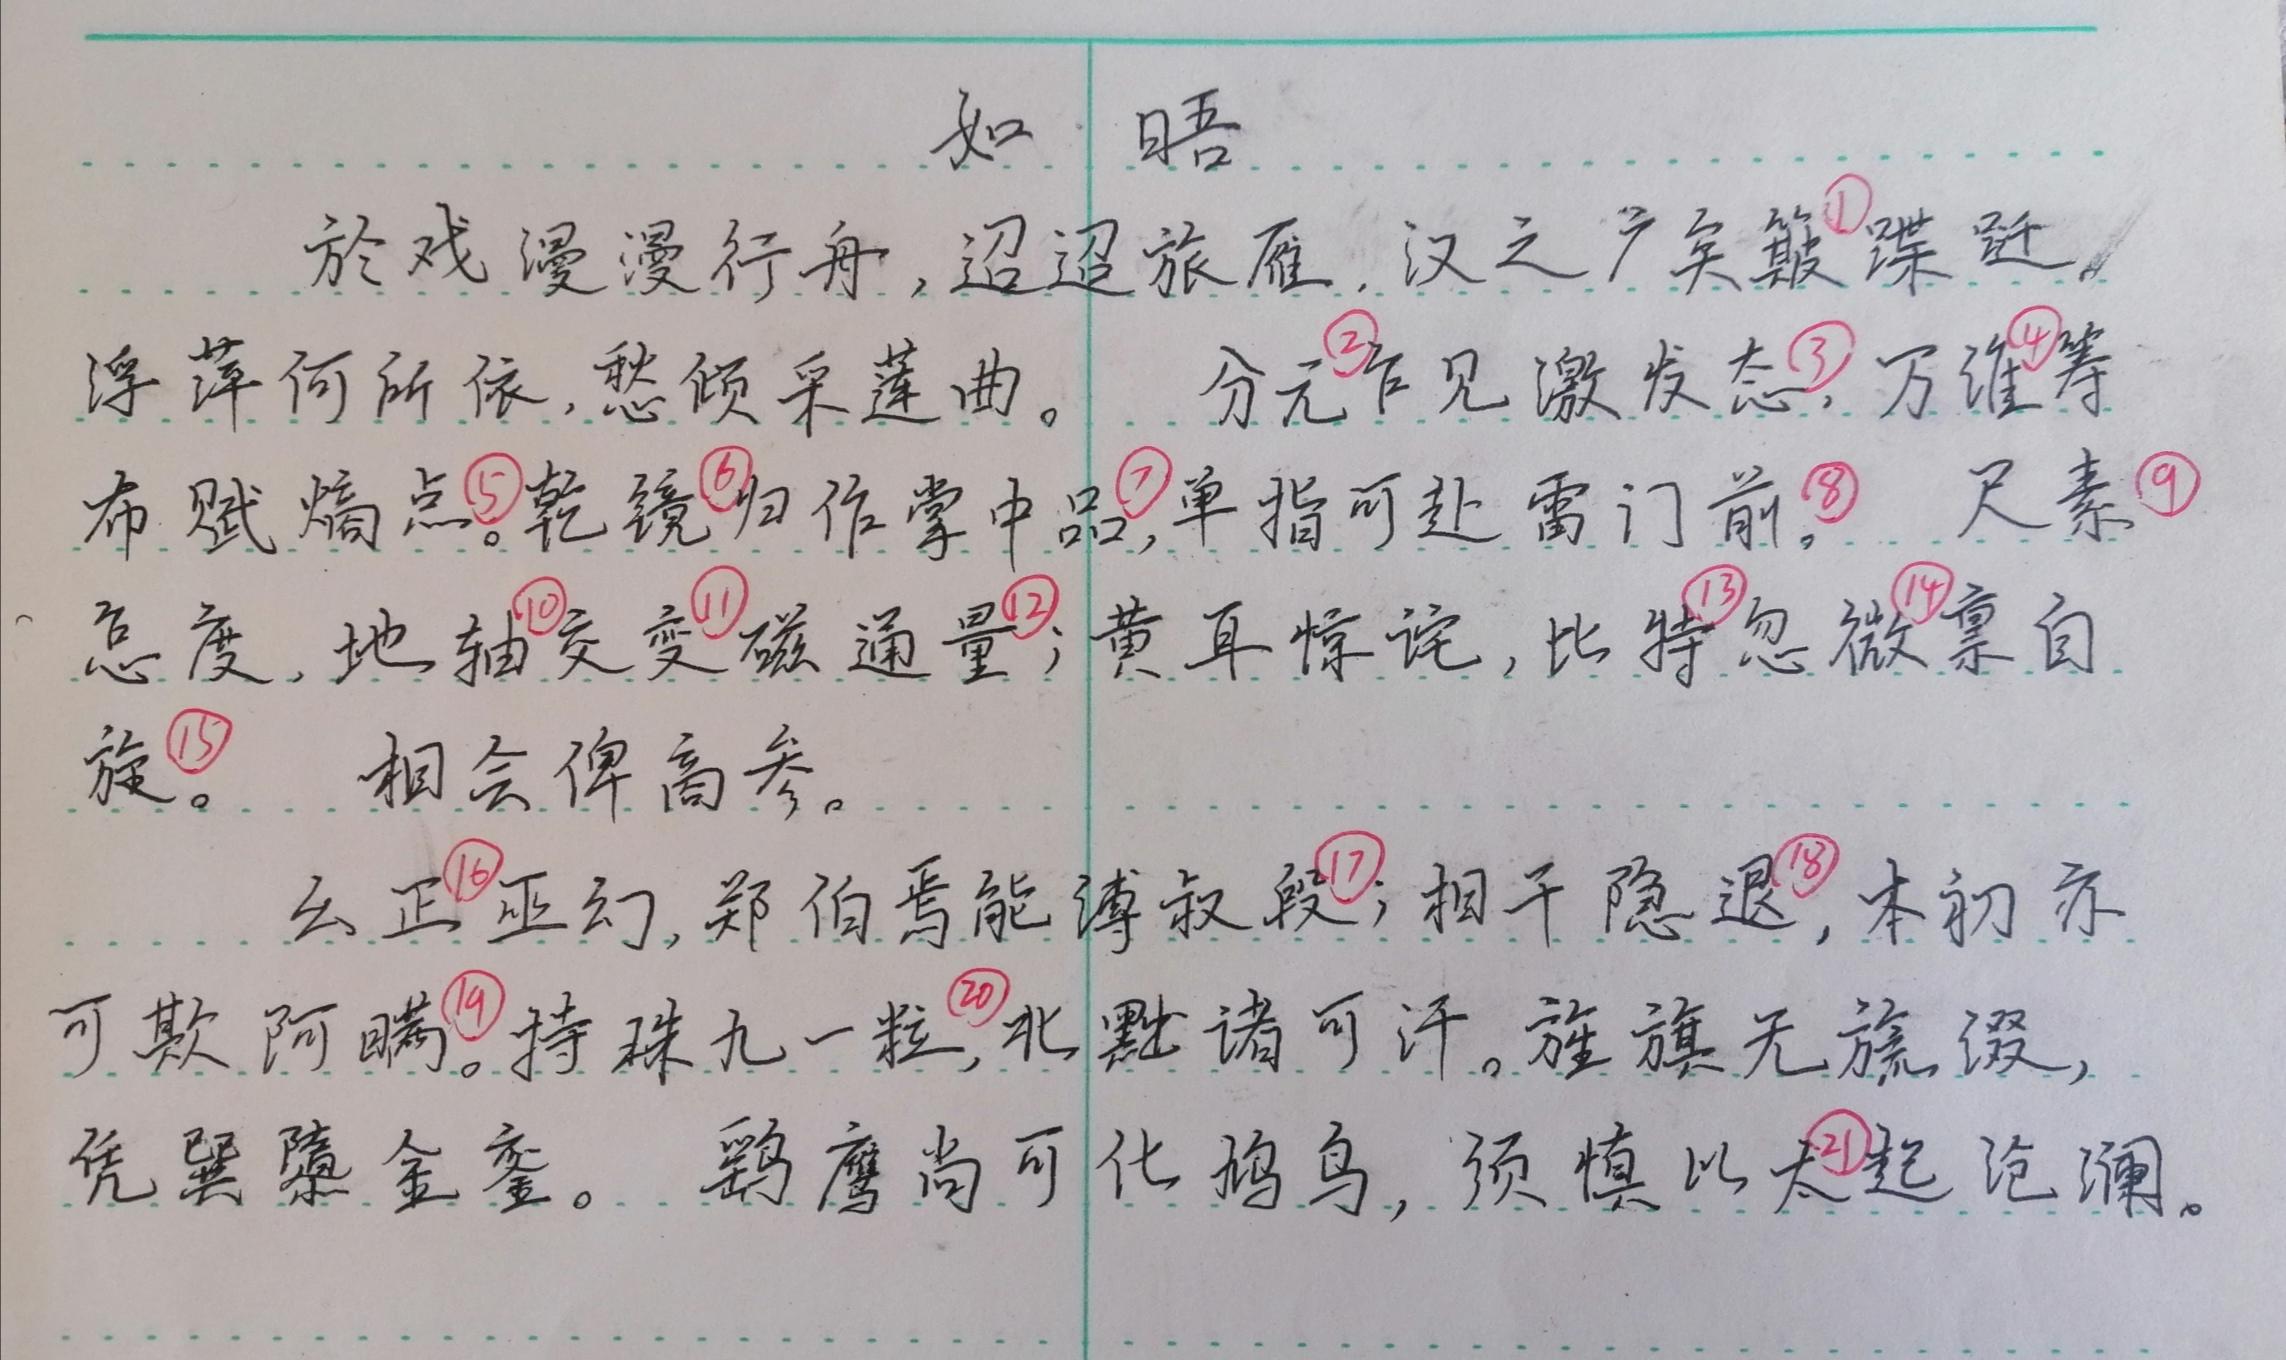 如晤
於戏漫漫行舟,迢迢旅雁,汉之广矣①蹀跹,
浮萍何所依,愁倾采莲曲。 分元②乍见激发态③,万维④筹
布赋熵点⑤。乾镜⑥归作掌中品⑦,单指可赴雷门前⑧。 尺素⑨
怎度,地轴⑩交变⑪磁通量⑫;黄耳惊诧,比特⑬忽微⑭禀自
旋⑮。 相会俾高参。
幺正⑯巫幻,郑伯焉能溥叔段⑰;相干隐退⑱,本初亦
可欺阿瞒⑲。持珠九一粒⑳,北诸可汗。旌旗无旒缀,
凭巽隳金銮。 鹞鹰尚可化鸠鸟,须慎以太㉑起沧澜。